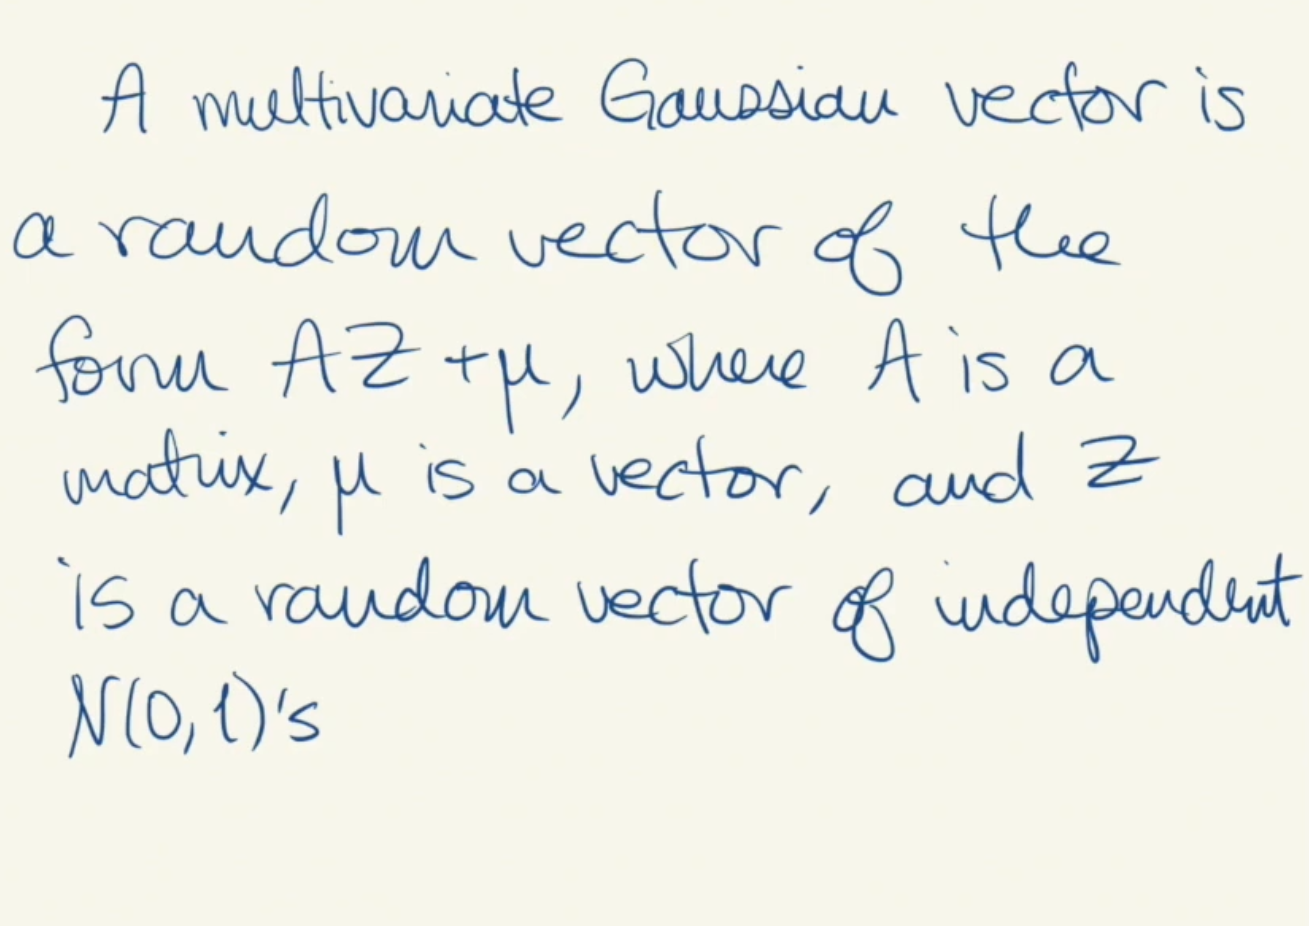 A multivariate Gaussian vector is
a random vector of the
form AZ + μ, where A is a
matrix, μ is a vector, and Z
is a random vector of independent
N(0,1)'s